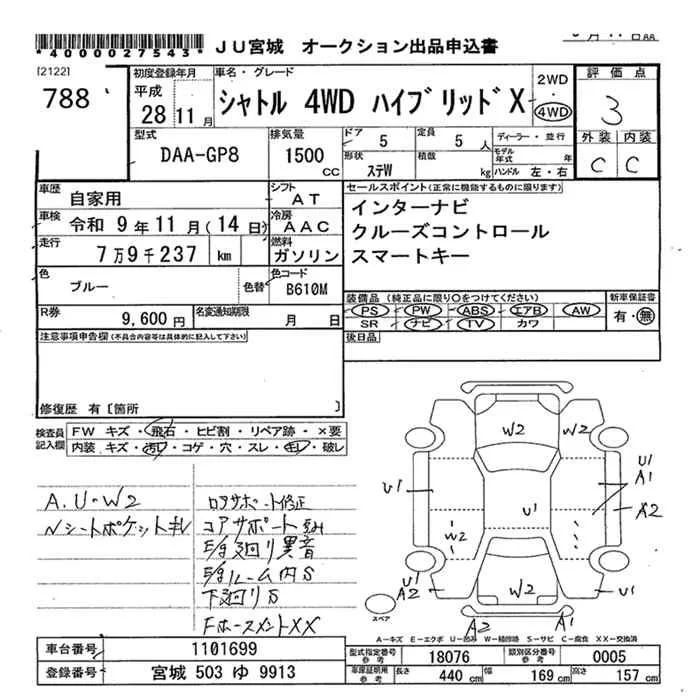 *4000027543*
JU宮城 オークション出品申込書
[2122]
788
初度登録年月
平成
28 11月
車名・グレード
シャトル 4WD ハイブリッドX
2WD
・
4WD
評価点
3
外装 内装
C C
型式
DAA-GP8
排気量
1500
CC
ドア
5
定員
5 人
形状
ステW
積載
kg
ディーラー・並行
モデル年式 年
ハンドル 左・右
車歴
自家用
シフト
AT
車検
令和 9年11月(14日)
冷房
AAC
走行
7万9千237 km
燃料
ガソリン
色
ブルー
色替
色コード
B610M
R券
9,600円
名変通知期限
月 日
セールスポイント(正常に機能するものに限ります)
インターナビ
クルーズコントロール
スマートキー
装備品(純正品に限り○をつけてください)
PS PW ABS エアB AW
SR ナビ TV カワ
新車保証書
有・無
注意事項申告欄(不具合内容等は具体的に記入して下さい)
修復歴 有〔箇所 〕
後日品
検査員記入欄
FW キズ・飛石・ヒビ割・リペア跡・×要
内装 キズ・汚れ・コゲ・穴・スレ・キレ・破レ
A.U・W2
Nシートポケットキレ
ロアサポート修正
コアサポート歪み
E/g廻り異音
E/gルーム内S
下廻りS
W2 W2
U1
U1
U1
A1
A2
W2
W2
U1
A2
U1
A2 A1
スペア
A-キズ E-エクボ U-凹み W-補修跡 S-サビ C-腐食 XX-交換済
車台番号
1101699
登録番号
宮城 503 ゆ 9913
型式指定番号
参考
18076
類別区分番号
参考
0005
車庫証明用
参考
長さ
440 cm
幅
169 cm
高さ
157 cm